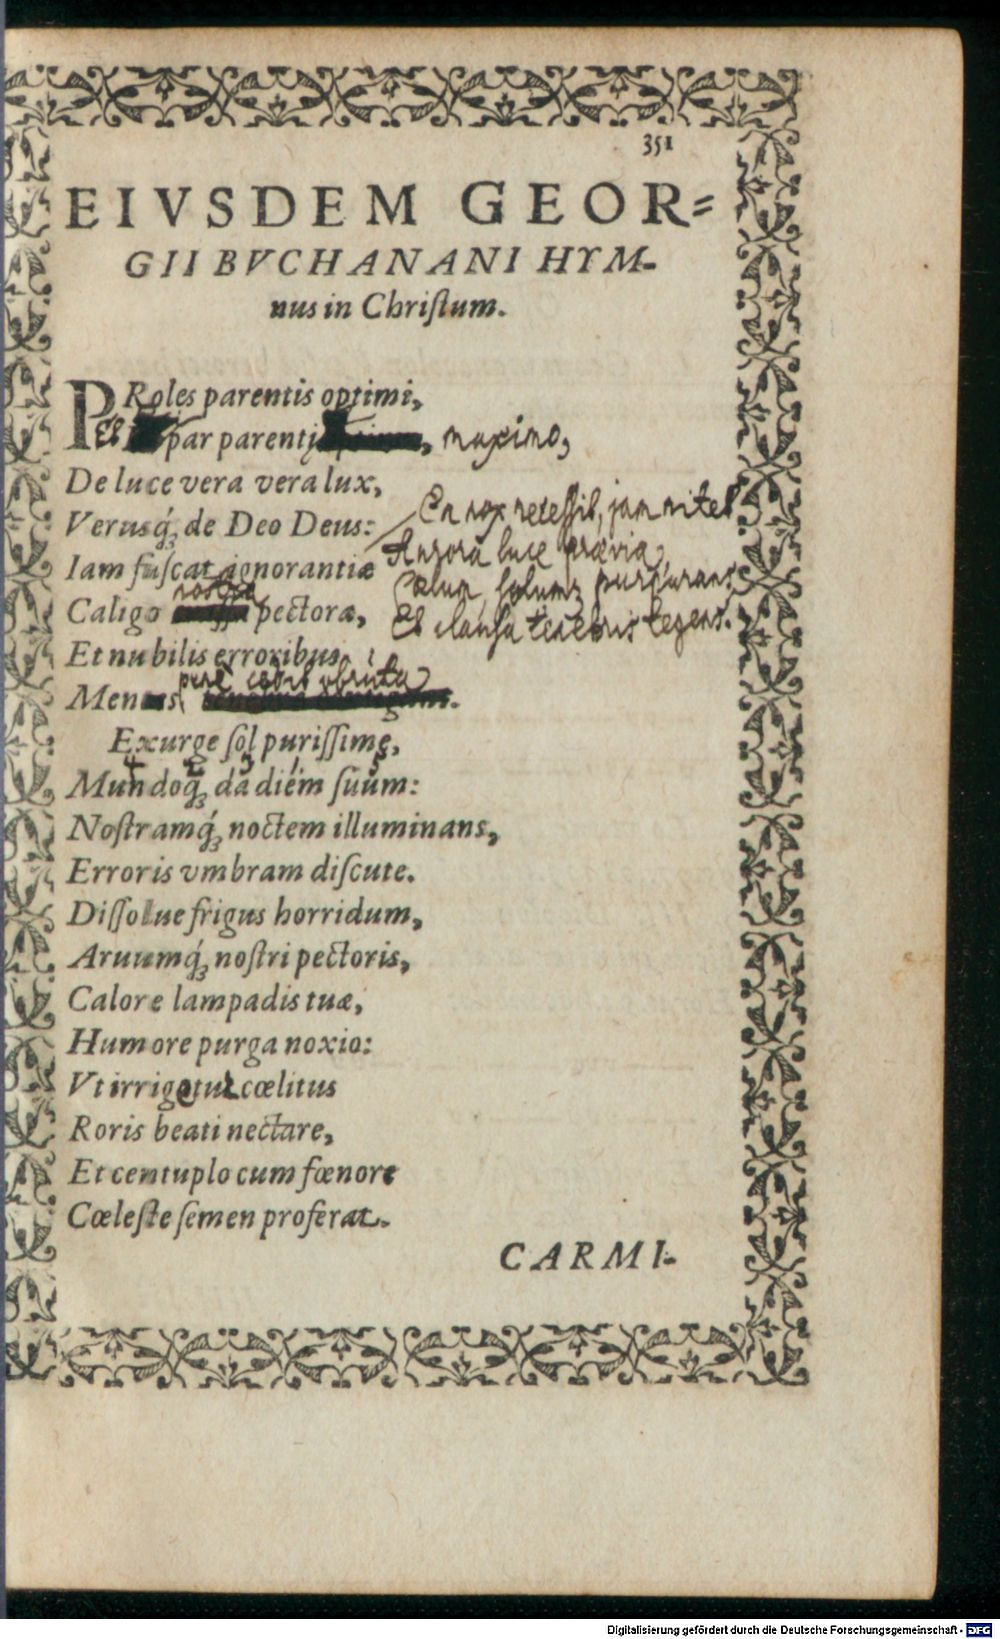 351
EIVSDEM GEOR=
GII BVCHANANI HYM-
nus in Chriſtum.
PRoles parentis optimi,
Et par parenti maximo,
De luce vera vera lux,
Verusq́; de Deo Deus:
En nox recessit, jam nitet
Aurora luce praevia,
Coelum, solumq; purpurans,
Et clausa tenebris tegens.
Iam fuſcat ignorantiæ
Caligo nostra pectora,
Et nubilis erroribus
Mens pene cedit obruta
Exurge ſol puriſſime,
4 2 3 1 5
Mundoq́; da diem ſuum:
Noſtramq́; noctem illuminans,
Erroris vmbram diſcute.
Diſſolue frigus horridum,
Aruumq́; noſtri pectoris,
Calore lampadis tuæ,
Humore purga noxio:
Vt irrigetur cœlitus
Roris beati nectare,
Et centuplo cum fœnore
Cœleſte ſemen proferat.
CARMI-
Digitalisierung gefördert durch die Deutsche Forschungsgemeinschaft - DFG